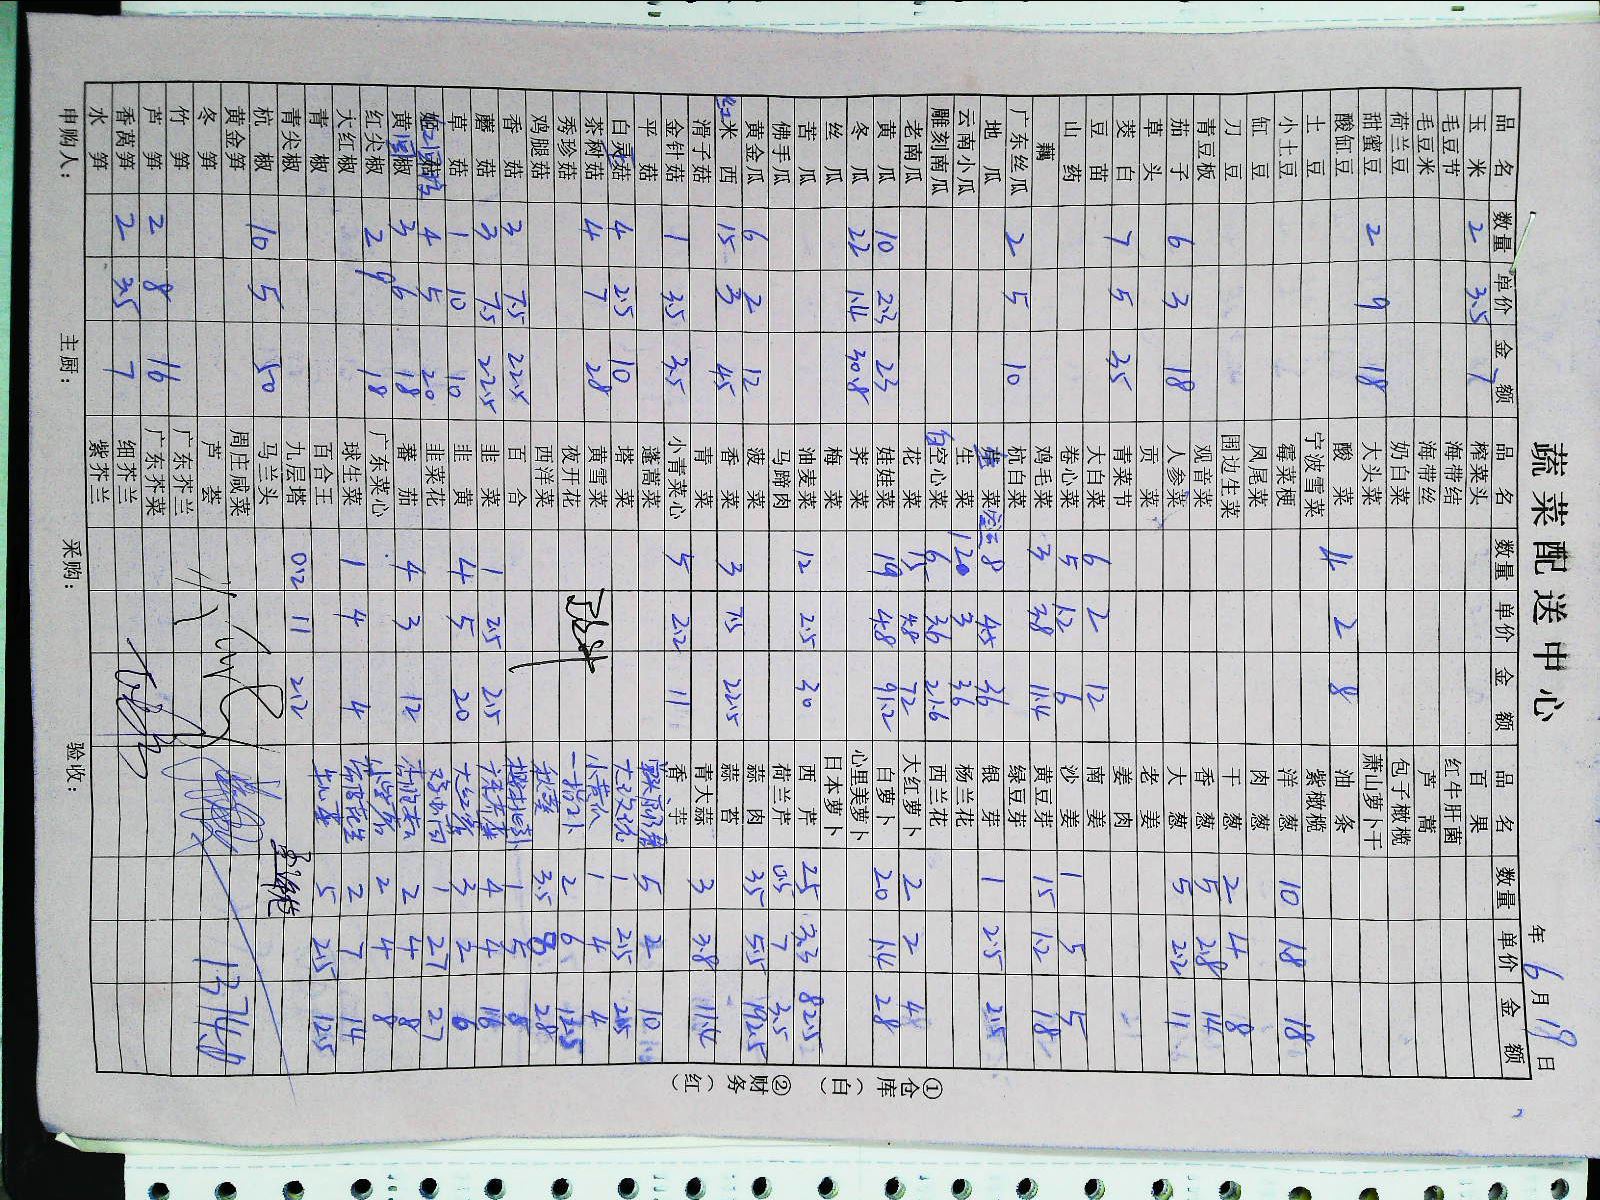 蔬菜配送中心
年 6月 19日
品名 数量 单价 金额 品名 数量 单价 金额 品名 数量 单价 金额
玉米 2 3.5 7 榨菜头 百果
毛豆节 海带结 红牛肝菌
毛豆米 海带丝 芦蒿
荷兰豆 奶白菜 包子橄榄
甜蜜豆 2 9 18 大头菜 萧山萝卜干
酸缸豆 酸菜 4 2 8 油条
土豆 宁波雪菜 紫橄榄
小土豆 霉菜梗 洋葱 10 1.8 18
缸豆 凤尾菜 肉葱
刀豆 围边生菜 干葱 2 4 8
青豆板 观音菜 香葱 5 2.8 14
茄子 6 3 18 人参菜 大葱 5 2.2 11
草头 贡菜 老姜
茭白 7 5 35 青菜节 姜肉
豆苗 大白菜 6 2 12 南姜
山药 卷心菜 5 1.2 6 沙姜 1 5 5
藕 鸡毛菜 3 3.8 11.4 黄豆芽 15 1.2 18
广东丝瓜 2 5 10 杭白菜 绿豆芽
地瓜 菜 8 4.5 36 银芽 1 2.5 2.5
云南小瓜 生菜 12 3 36 杨兰花
雕刻南瓜 空心菜 6 3.6 21.6 西兰花
老南瓜 花菜 15 4.8 72 大红萝卜 2 2 4
黄瓜 10 2.3 23 娃娃菜 19 4.8 91.2 白萝卜 20 1.4 28
冬瓜 22 1.4 30.8 芥菜 心里美萝卜
丝瓜 梅菜 日本萝卜
苦瓜 油麦菜 12 2.5 30 西芹 25 3.3 82.5
佛手瓜 马蹄肉 荷兰芹 0.5 7 3.5
黄金瓜 6 2 12 菠菜 蒜肉 35 5.5 192.5
红米西 15 3 45 香菜 3 7.5 22.5 蒜苔
滑子菇 青菜 青大蒜 3 3.8 11.4
金针菇 1 3.5 3.5 小青菜心 5 2.2 11 香芋
平菇 蓬蒿菜 5 2 10
白灵菇 4 2.5 10 塔菜 1 2.5 2.5
茶树菇 4 7 28 黄雪菜 小黄瓜 1 4 4
秀珍菇 夜开花 2 6 12.5
鸡腿菇 西洋菜 秋葵 3.5 8 28
香菇 3 7.5 22.5 百合 1 5 5
蘑菇 3 7.5 22.5 韭菜 1 2.5 2.5 4 4 16
草菇 1 10 10 韭黄 4 5 20 3 2 6
菇 4 5 20 韭菜花 1 27 27
黄椒 3 6 18 蕃茄 4 3 12 2 4 8
红尖椒 2 9 18 广东菜心 2 4 8
大红椒 球生菜 1 4 4 2 7 14
青椒 百合王 5 2.5 12.5
青尖椒 九层塔 0.2 11 2.2
杭椒 10 5 50 马兰头
黄金笋 周庄咸菜
冬笋 芦荟 1374.0
竹笋 广东芥兰
芦笋 2 8 16 广东芥菜
香莴笋 2 3.5 7 细芥兰
水笋 紫芥兰
申购人： 主厨： 采购： 验收：
①仓库（白） ②财务（红）